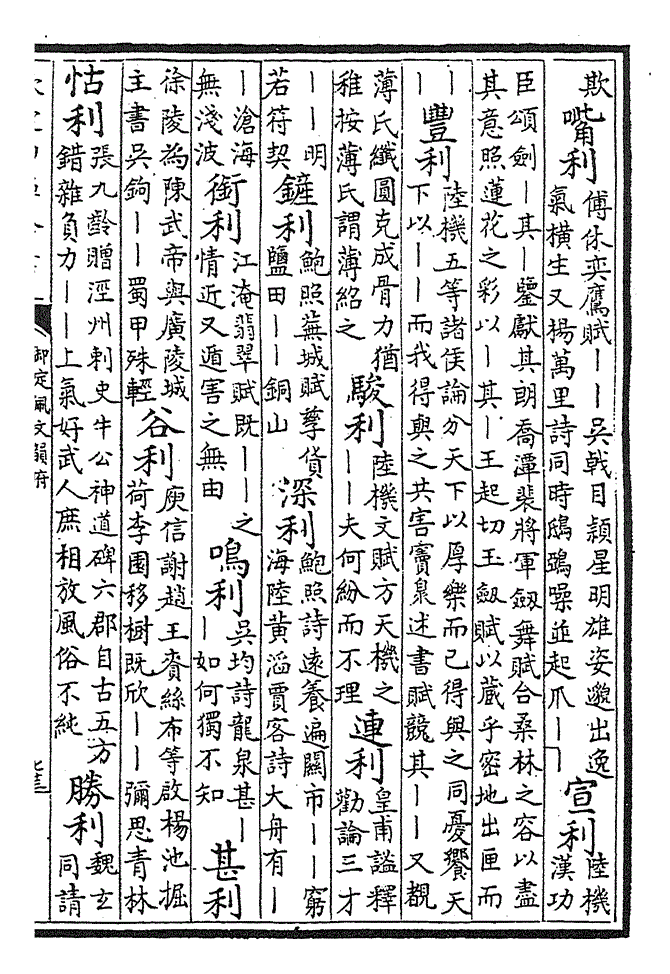 欺
嘴利
傅休奕鷹賦——吳戟目頴星明雄姿邈出逸
氣橫生又楊萬里詩同時鴟鵶噪並起爪——
宣利
陸機
漢功
臣頌劍—其—鑒獻其朗喬潭裴將軍劔舞賦合桑林之容以盡
其意照蓮花之彩以—其—王起切玉劔賦以蔵乎密地出匣而
——
豐利
陸機五等諸侯論分天下以厚樂而已得與之同憂饗天
下以——而我得與之共害竇臮述書賦競其——又覩
薄氏纖圓克成骨力猶
稚按薄氏謂薄紹之
駿利
陸機文賦方天機之
——夫何紛而不理
連利
皇甫謐釋
勸論三才
——明
若符契
鏟利
鮑照蕪城賦孳貨
鹽田——銅山
深利
鮑照詩遠養遍關市——窮
海陸黄滔賈客詩大舟有—
—滄海
無淺波
銜利
江淹翡翠賦既——之
情近又遁害之無由
鳴利
吳均詩龍泉甚—
—如何獨不知
甚利
徐陵為陳武帝與廣陵城
主書吳鉤——蜀甲殊輕
谷利
庾信謝趙王賚絲布等啟楊池掘
荷李園移樹既欣——彌思青林
怙利
張九齡贈涇州刺史牛公神道碑六郡自古五方
錯雜負力——上氣好武人庶相放風俗不純
勝利
魏玄
同請
御定佩文韻府